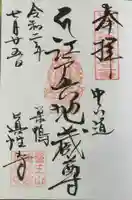 奉拝
中山道
江戸六地蔵尊
巣鴨
眞性寺
令和二年
七月廿五日